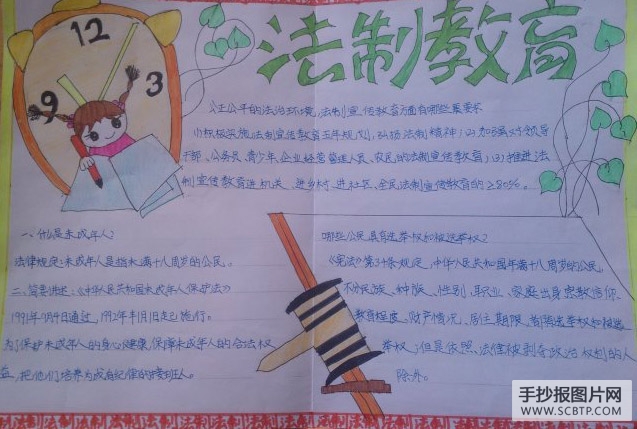 法制教育
12
3
9
公正公平的法治环境,法制宣传教育方面有哪些要求
(1)积极实施法制宣传教育五年规划,弘扬法制精神;(2)加强对领导
干部、公务员、青少年、企业经营管理人员、农民的法制宣传教育;(3)推进法
制宣传教育进机关、进乡村、进社区、全民法制宣传教育的≥80%。
一、什么是未成年人?
法律规定:未成年人是指未满十八周岁的公民。
二、简要讲述:《中华人民共和国未成年人保护法》
1991年9月4日通过,1992年1月1日起施行。
为了保护未成年人的身心健康,保障未成年人的合法权
益,把他们培养为成有纪律的接班人。
哪些公民具有选举权和被选举权?
《宪法》第34条规定,中华人民共和国年满十八周岁的公民,
不分民族、种族、性别、职业、家庭出身、宗教信仰、
教育程度、财产情况、居住期限,都有选举权和被选
举权;但是依照法律被剥夺政治权利的人
除外。
手抄报图片网
WWW.SCBTP.COM
法制 法制 法制 法制 法制 法制 法制 法制 法制 法制